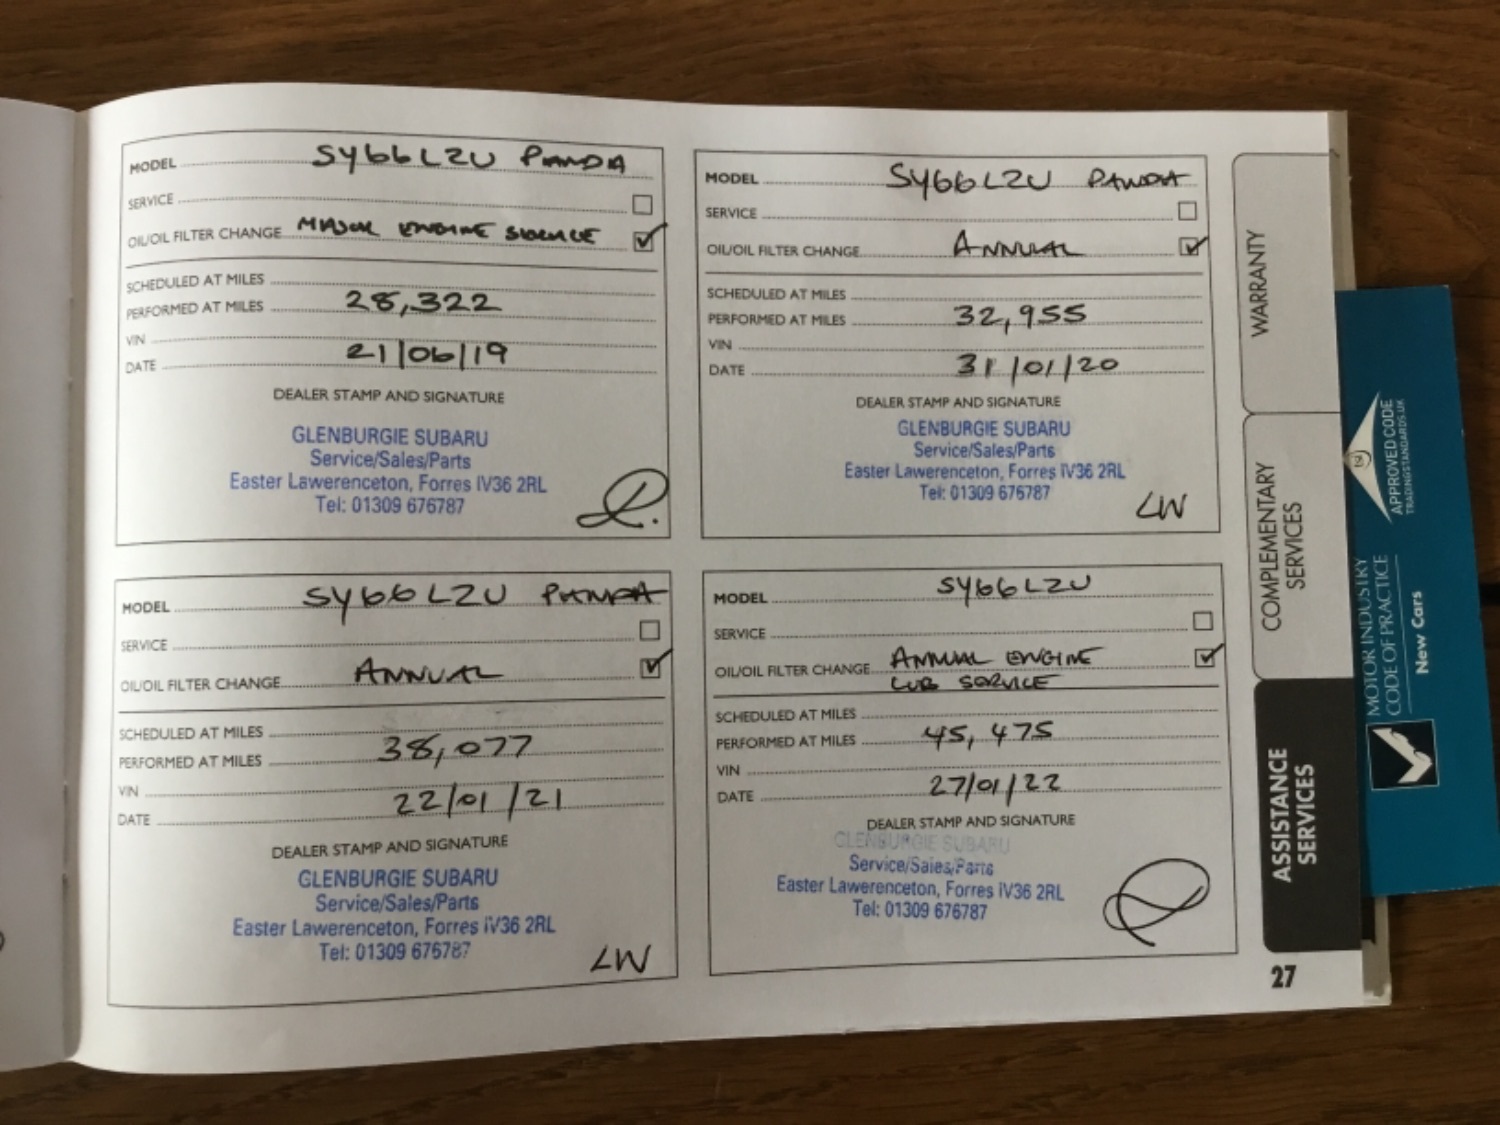 MODEL SY66LZU PANDA
SERVICE
OIL/OIL FILTER CHANGE MAJOR ENGINE SERVICE
SCHEDULED AT MILES
PERFORMED AT MILES 28,322
VIN
DATE 21/06/19
DEALER STAMP AND SIGNATURE
GLENBURGIE SUBARU
Service/Sales/Parts
Easter Lawerenceton, Forres IV36 2RL
Tel: 01309 676787
MODEL SY66LZU PANDA
SERVICE
OIL/OIL FILTER CHANGE ANNUAL
SCHEDULED AT MILES
PERFORMED AT MILES 32,955
VIN
DATE 31/01/20
DEALER STAMP AND SIGNATURE
GLENBURGIE SUBARU
Service/Sales/Parts
Easter Lawerenceton, Forres IV36 2RL
Tel: 01309 676787
LW
MODEL SY66LZU PANDA
SERVICE
OIL/OIL FILTER CHANGE ANNUAL
SCHEDULED AT MILES
PERFORMED AT MILES 38,077
VIN
DATE 22/01/21
DEALER STAMP AND SIGNATURE
GLENBURGIE SUBARU
Service/Sales/Parts
Easter Lawerenceton, Forres IV36 2RL
Tel: 01309 676787
LW
MODEL SY66LZU
SERVICE
OIL/OIL FILTER CHANGE ANNUAL ENGINE
LUB SERVICE
SCHEDULED AT MILES
PERFORMED AT MILES 45,475
VIN
DATE 27/01/22
DEALER STAMP AND SIGNATURE
GLENBURGIE SUBARU
Service/Sales/Parts
Easter Lawerenceton, Forres IV36 2RL
Tel: 01309 676787
WARRANTY
COMPLEMENTARY
SERVICES
ASSISTANCE
SERVICES
27
APPROVED CODE
TRADINGSTANDARDS.UK
MOTOR INDUSTRY
CODE OF PRACTICE
New Cars